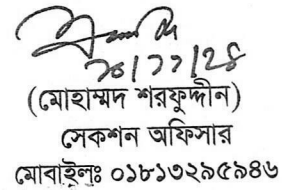 ২০/১১/২৪
(মোহাম্মদ শরফুদ্দীন)
সেকশন অফিসার
মোবাইলঃ ০১৮১৩২৯৫৯৪৬